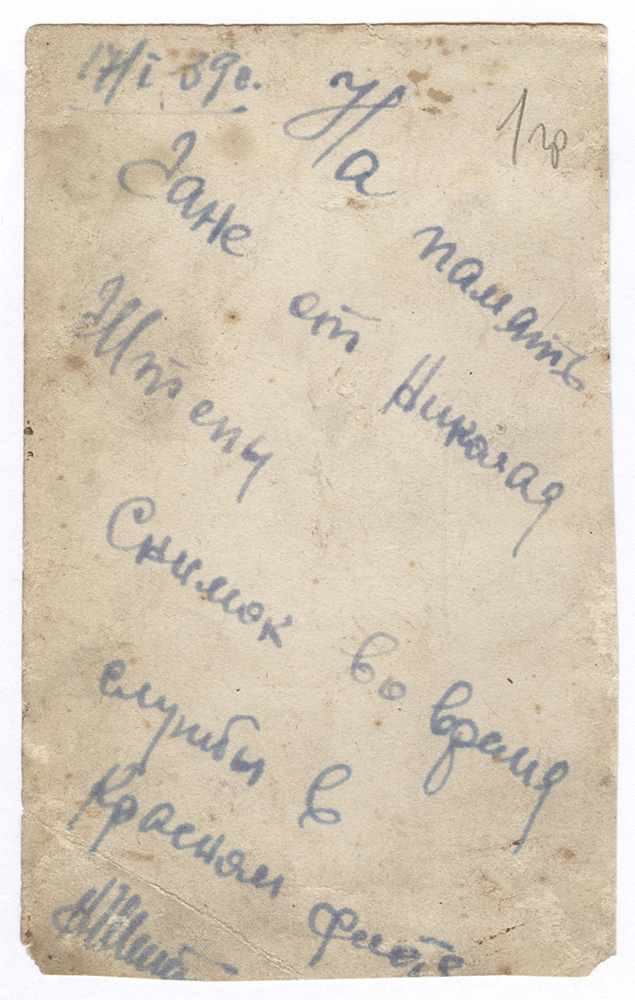 17/I 39г.
1 гр
На память
Зане от Николая
Штепы
Снимок во время
службы в
Красном флоте